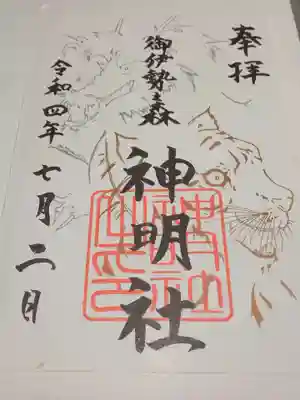 奉拝
御伊勢森
神明社
令和四年
七月二日